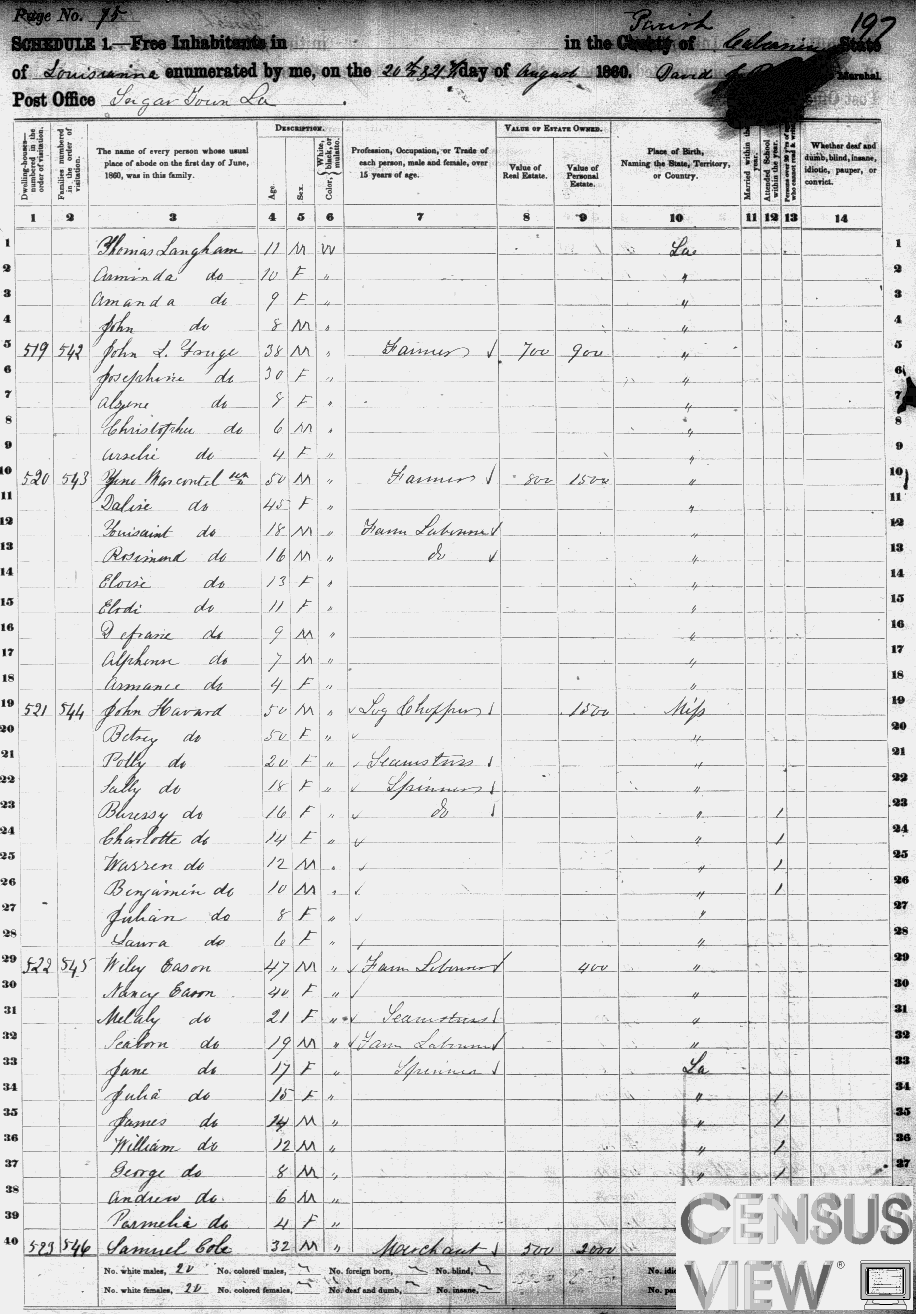 Page No. 75
Parish
197
SCHEDULE 1.—Free Inhabitants in in the County of State
of Louisianna enumerated by me, on the 20th & 21st day of August 1860. David J Marshal.
Post Office Sugar Town La
Dwelling-houses— numbered in the order of visitation.
Families numbered in the order of visitation.
The name of every person whose usual place of abode on the first day of June, 1860, was in this family.
DESCRIPTION.
Age.
Sex.
Color, White, black, or mulatto.
Profession, Occupation, or Trade of each person, male and female, over 15 years of age.
VALUE OF ESTATE OWNED.
Value of Real Estate.
Value of Personal Estate.
Place of Birth, Naming the State, Territory, or Country.
Married within the year.
Attended School within the year.
Persons over 20 y'rs of age who cannot read & write.
Whether deaf and dumb, blind, insane, idiotic, pauper, or convict.
1 2 3 4 5 6 7 8 9 10 11 12 13 14
1 Thomas Langham 11 M W La 1
2 Arminda do 10 F " " 2
3 Amanda do 9 F " " 3
4 John do 8 M " " 4
5 519 542 John L. Fruge 38 M " Farmer 700 900 " 5
6 Josephine do 30 F " " 6
7 Alzene do 8 F " " 7
8 Christopher do 6 M " " 8
9 Arselie do 4 F " " 9
10 520 543 Marcontel sen 50 M " Farmer 800 1500 " 10
11 Dalise do 45 F " " 11
12 Touisaint do 18 M " Farm Laborer " 12
13 Rosimond do 16 M " do " 13
14 Eloise do 13 F " " 14
15 Elodi do 11 F " " 15
16 do 9 M " " 16
17 Alphonse do 7 M " " 17
18 Armance do 4 F " " 18
19 521 544 John Havard 50 M " Log Chopper 1500 Miss 19
20 Betsey do 50 F " " 20
21 Polly do 20 F " Seamstress " 21
22 Sally do 18 F " Spinner " 22
23 Buressy do 16 F " do " 1 23
24 Charlotte do 14 F " " 1 24
25 Warren do 12 M " " 1 25
26 Benjamin do 10 M " " 1 26
27 Julian do 8 F " " 27
28 Laura do 6 F " " 28
29 522 545 Wiley Eason 47 M " Farm Laborer 400 " 29
30 Nancy Eason 40 F " " 30
31 Melaly do 21 F " Seamstress " 31
32 Seaborn do 19 M " Farm Laborer " 32
33 Jane do 17 F " Spinner La 33
34 Julia do 15 F " " 1 34
35 James do 14 M " " 1 35
36 William do 12 M " " 1 36
37 George do 8 M " " 1 37
38 Andrew do. 6 M "
39 Parmelia do 4 F "
40 523 546 Samuel Cole 32 M " Merchant 500 2000
No. white males, 20 No. colored males, No. foreign born, No. blind, No. idio
No. white females, 20 No. colored females, No. deaf and dumb, No. insane, No. pa
CENSUS
VIEW®